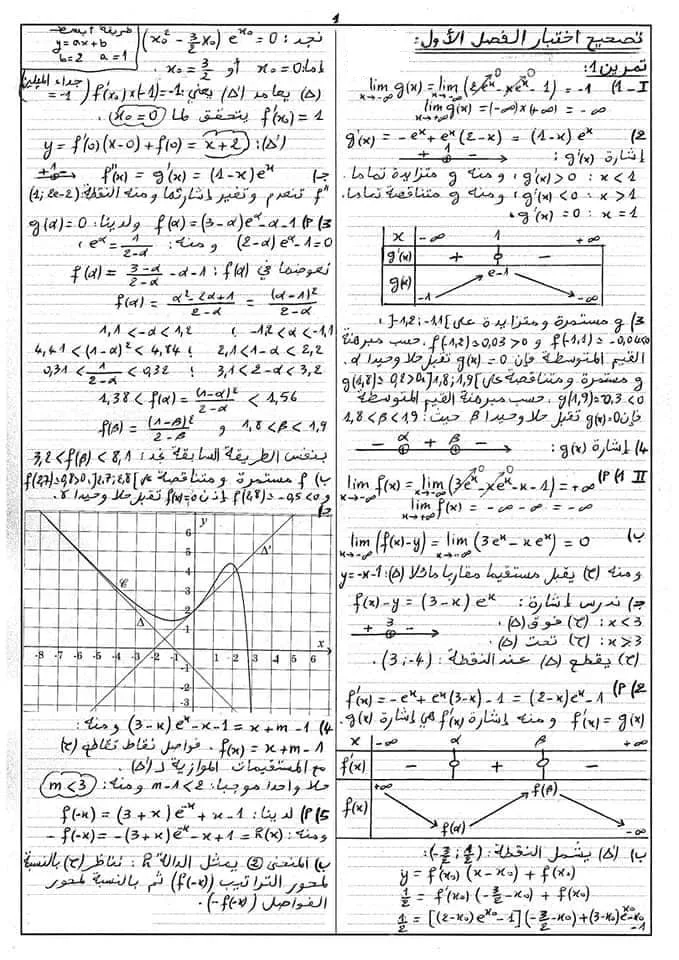 1
تصحيح اختبار الفصل الأول:
تمرين 1:
1-I) lim g(x) = lim (2eˣ - xeˣ - 1) = -1
x→-∞ x→-∞
lim g(x) = (-∞)x(+∞) = -∞
x→+∞
2) g'(x) = -eˣ + eˣ(2-x) = (1-x)eˣ
إشارة g'(x): + 1 -
x<1 : g'(x)>0 ، ومنه g متزايدة تماما.
x>1 : g'(x)<0 ، ومنه g متناقصة تماما.
x=1 : g'(x)=0 ،
x -∞ 1 +∞
g'(x) + 0 -
g(x) -1 e-1 -∞
3) g مستمرة ومتزايدة على ]-1,2 ; -1,1[ ،
القيم المتوسطة فإن g(x)=0 تقبل حلا وحيدا α.
g مستمرة ومتناقصة على ]1,8 ; 1,9[ g(1,8)=0,2>0
g(1,9)=-0,3<0 ، حسب مبرهنة القيم المتوسطة
فإن g(x)=0 تقبل حلا وحيدا β حيث: 1,8<β<1,9
4) إشارة g(x): - α + β -
II 1) P) lim f(x) = lim (3eˣ - xeˣ - x - 1) = +∞
x→-∞ x→-∞
lim f(x) = -∞ -∞ = -∞
x→+∞
ب) lim (f(x)-y) = lim (3eˣ - xeˣ) = 0
x→-∞ x→-∞
ومنه (C) يقبل مستقيما مقاربا مائلا (Δ): y=-x-1
ج) ندرس إشارة: f(x)-y = (3-x)eˣ
x<3 : (C) فوق (Δ). + 3 -
x>3 : (C) تحت (Δ).
(C) يقطع (Δ) عند النقطة: (3 ; -4).
2) P) f'(x) = -eˣ + eˣ(3-x) - 1 = (2-x)eˣ - 1
f'(x) = g(x) ومنه إشارة f'(x) هي إشارة g(x).
x -∞ α β +∞
f'(x) - 0 + 0 -
f(x) +∞ f(α) f(β) -∞
ب) (Δ') يشمل النقطة: (-3/2 ; 1/2):
y = f'(x₀)(x-x₀) + f(x₀)
1/2 = f'(x₀)(-3/2 - x₀) + f(x₀)
1/2 = [(2-x₀)e^x₀ - 1](-3/2 - x₀) + (3-x₀)e^x₀ - x₀ - 1
نجد: (x₀² - 3/2 x₀) e^x₀ = 0
y = ax+b
b=2 a=1
إما: x₀=0 أو x₀ = 3/2 .
(Δ) يعامد (Δ') يعني: f'(x₀)x(-1)=-1 (جداء الميلين = -1)
f'(x₀)=1 يتحقق لما (x₀=0)
(Δ'): y = f'(0)(x-0) + f(0) = x+2
ج) f''(x) = g'(x) = (1-x)eˣ + 1 -
f'' تنعدم وتغير إشارتها ومنه النقطة: (1 ; 2e-2)
3) P) f(α) = (3-α)e^α - α - 1 ولدينا: g(α)=0
(2-α)e^α - 1 = 0 ومنه: e^α = 1/(2-α) ،
نعوضها في f(α): f(α) = (3-α)/(2-α) - α - 1
f(α) = (α²-2α+1)/(2-α) = (α-1)²/(2-α)
-1,2<α<-1,1 ؛ 1,1<-α<1,2
2,1<1-α<2,2 ؛ 4,41<(1-α)²<4,84
3,1<2-α<3,2 ؛ 0,31<1/(2-α)<0,32
1,38 < f(α) = (1-α)²/(2-α) < 1,56
1,8<β<1,9 و f(β) = (1-β)²/(2-β)
بنفس الطريقة السابقة نجد: 3,2<f(β)<8,1
ب) f مستمرة ومتناقصة على ]2,7 ; 2,8[، f(2,7)=0,8>0
و f(2,8)=-0,5<0 إذن f(x)=0 تقبل حلا وحيدا
ج)
y
6
4
3
2
1
Δ'
C
Δ
x
-8 -7 -6 -5 -4 -3 -2 -1 0 1 2 3 4 5 6
-1
-2
-3
4) (3-x)eˣ - x - 1 = x + m - 1 ومنه:
f(x) = x+m-1 . فواصل نقاط تقاطع (C)
مع المستقيمات الموازية لـ (Δ').
حلا واحدا موجبا: m-1<2 ومنه: (m<3)
5) P) لدينا: f(-x) = (3+x)e⁻ˣ + x - 1
ومنه: -f(-x) = -(3+x)e⁻ˣ - x + 1 = h(x)
ب) المنحنى (2) يمثل الدالة h: نناظر (C) بالنسبة
لمحور التراتيب (f(-x)) ثم بالنسبة لمحور
الفواصل (-f(-x)).